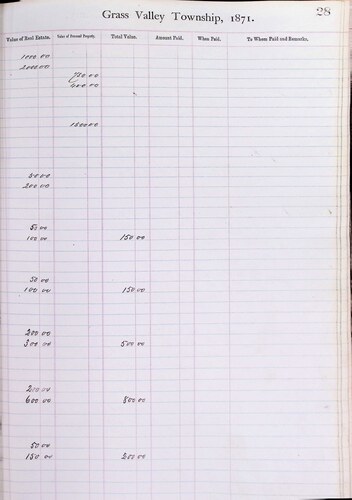 Grass Valley Township, 1871.
28
Value of Real Estate. Value of Personal Property. Total Value. Amount Paid. When Paid. To Whom Paid and Remarks.
1000 00
2000 00
750 00
400 00
1500 00
50 00
200 00
50 00
100 00 150 00
50 00
100 00 150 00
200 00
300 00 500 00
200 00
600 00 800 00
50 00
150 00 200 00